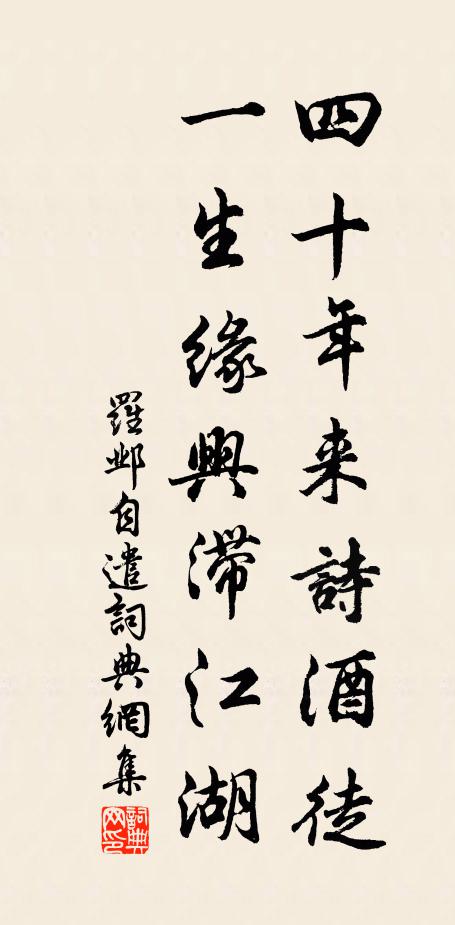 四十年来詩酒徒
一生緣興滯江湖
羅鄴自遣詞典網集
詞典網印